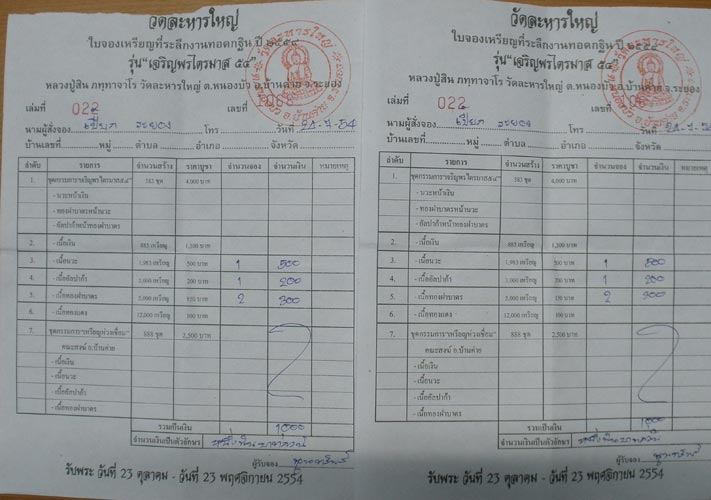 วัดละหารใหญ่
ใบจองเหรียญที่ระลึกงานทอดกฐิน ปี ๒๕๕๔
รุ่น"เจริญพรไตรมาส ๕๔"
หลวงปู่สิน ภทฺทาจาโร วัดละหารใหญ่ ต.หนองบัว อ.บ้านค่าย จ.ระยอง
เล่มที่ 022 เลขที่
นามผู้สั่งจอง เปี๊ยก ระยอง โทร วันที่ 24-7-54
บ้านเลขที่ หมู่ ตำบล อำเภอ จังหวัด
ลำดับ รายการ จำนวนสร้าง ราคาบูชา จำนวนจอง จำนวนเงิน หมายเหตุ
1. ชุดกรรมการ"เจริญพรไตรมาส๕๔" 383 ชุด 4,000 บาท
- นวะหน้าเงิน
- ทองฝาบาตรหน้านวะ
- อัลปาก้าหน้าทองฝาบาตร
2. - เนื้อเงิน 883 เหรียญ 1,200 บาท
3. - เนื้อนวะ 1,983 เหรียญ 500 บาท 1 500
4. - เนื้ออัลปาก้า 3,000 เหรียญ 200 บาท 1 200
5. - เนื้อทองฝาบาตร 5,000 เหรียญ 150 บาท 2 300
6. - เนื้อทองแดง 12,000 เหรียญ 100 บาท
7. ชุดกรรมการ"เหรียญห่วงเชื่อม" 888 ชุด 2,500 บาท
คณะสงฆ์ อ.บ้านค่าย
- เนื้อเงิน
- เนื้อนวะ
- เนื้ออัลปาก้า
- เนื้อทองฝาบาตร
รวมเป็นเงิน 1000
จำนวนเงินเป็นตัวอักษร หนึ่งพันบาทถ้วน
ผู้รับจอง
รับพระ วันที่ 23 ตุลาคม - วันที่ 23 พฤศจิกายน 2554
วัดละหารใหญ่
ใบจองเหรียญที่ระลึกงานทอดกฐิน ปี ๒๕๕๔
รุ่น"เจริญพรไตรมาส ๕๔"
หลวงปู่สิน ภทฺทาจาโร วัดละหารใหญ่ ต.หนองบัว อ.บ้านค่าย จ.ระยอง
เล่มที่ 022 เลขที่
นามผู้สั่งจอง เปี๊ยก ระยอง โทร วันที่ 24-7-54
บ้านเลขที่ หมู่ ตำบล อำเภอ จังหวัด
ลำดับ รายการ จำนวนสร้าง ราคาบูชา จำนวนจอง จำนวนเงิน หมายเหตุ
1. ชุดกรรมการ"เจริญพรไตรมาส๕๔" 383 ชุด 4,000 บาท
- นวะหน้าเงิน
- ทองฝาบาตรหน้านวะ
- อัลปาก้าหน้าทองฝาบาตร
2. - เนื้อเงิน 883 เหรียญ 1,200 บาท
3. - เนื้อนวะ 1,983 เหรียญ 500 บาท 1 500
4. - เนื้ออัลปาก้า 3,000 เหรียญ 200 บาท 1 200
5. - เนื้อทองฝาบาตร 5,000 เหรียญ 150 บาท 2 300
6. - เนื้อทองแดง 12,000 เหรียญ 100 บาท
7. ชุดกรรมการ"เหรียญห่วงเชื่อม" 888 ชุด 2,500 บาท
คณะสงฆ์ อ.บ้านค่าย
- เนื้อเงิน
- เนื้อนวะ
- เนื้ออัลปาก้า
- เนื้อทองฝาบาตร
รวมเป็นเงิน 1000
จำนวนเงินเป็นตัวอักษร หนึ่งพันบาทถ้วน
ผู้รับจอง
รับพระ วันที่ 23 ตุลาคม - วันที่ 23 พฤศจิกายน 2554